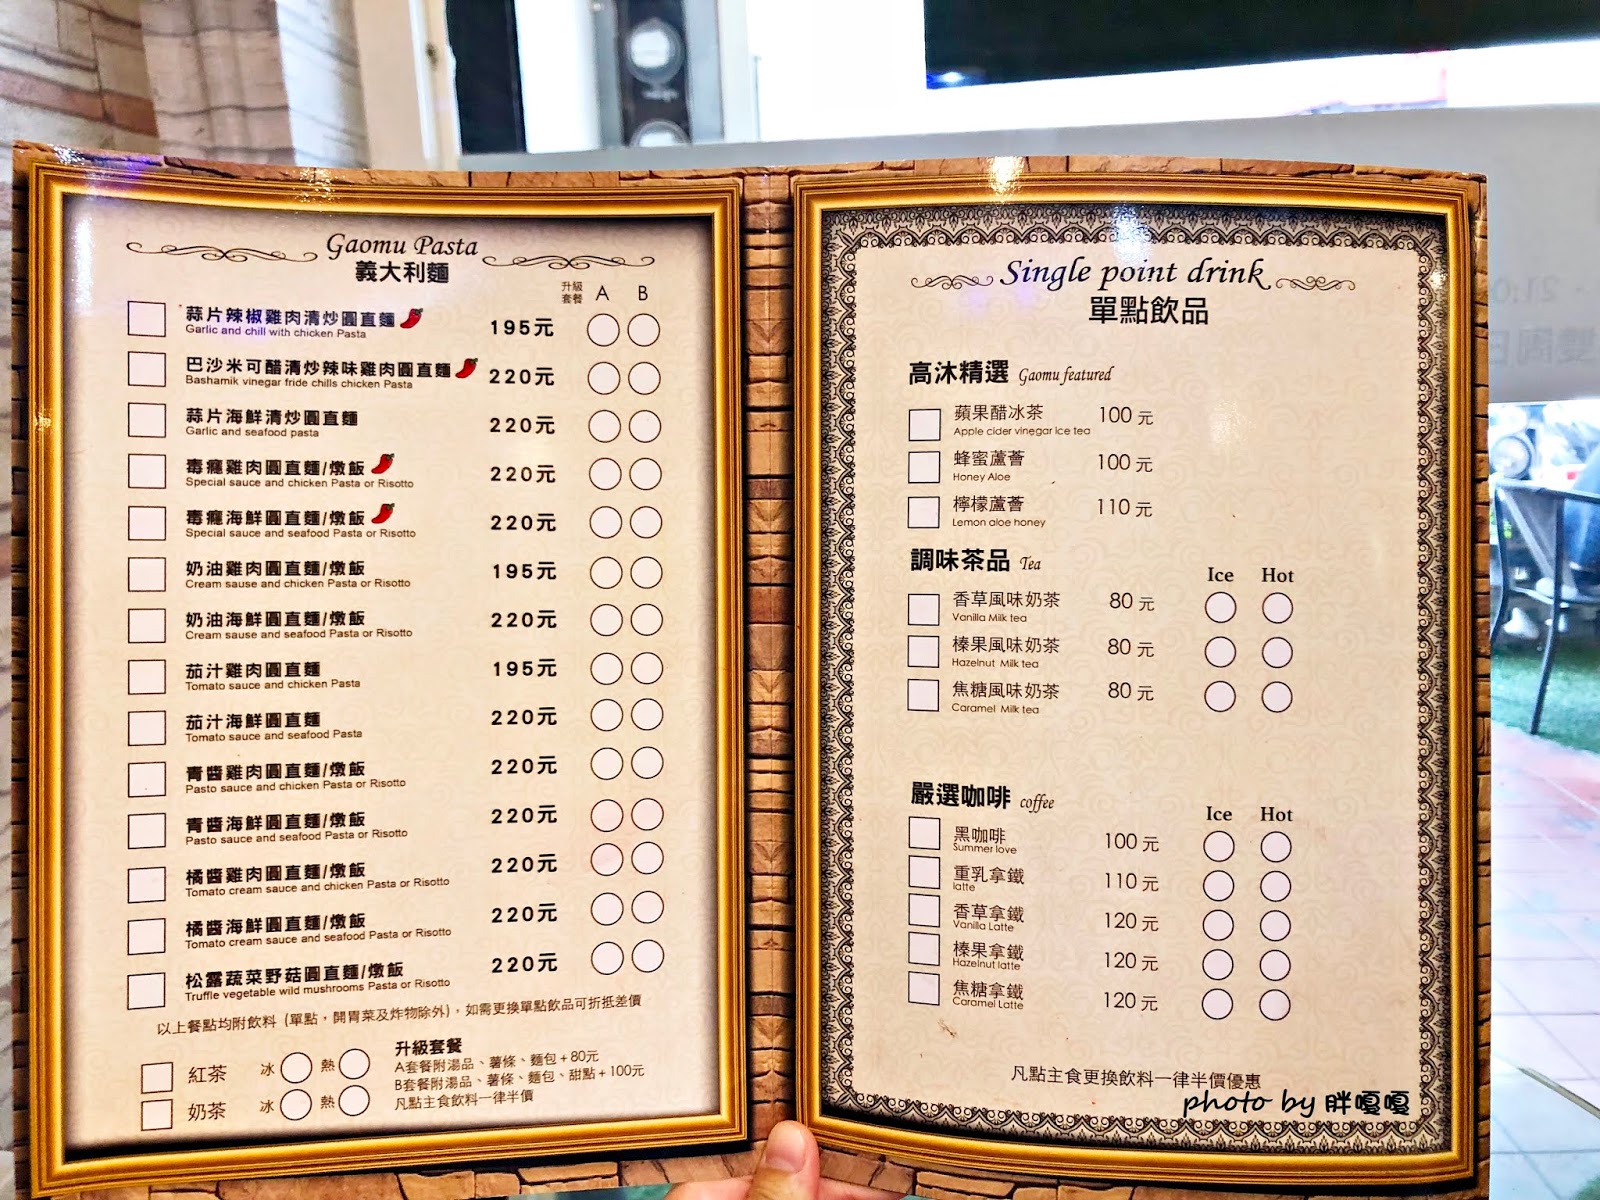 Gaomu Pasta
義大利麵
升級
套餐 A B
蒜片辣椒雞肉清炒圓直麵 195元
Garlic and chill with chicken Pasta
巴沙米可醋清炒辣味雞肉圓直麵 220元
Bashamik vinegar fride chills chicken Pasta
蒜片海鮮清炒圓直麵 220元
Garlic and seafood pasta
毒癮雞肉圓直麵/燉飯 220元
Special sauce and chicken Pasta or Risotto
毒癮海鮮圓直麵/燉飯 220元
Special sauce and seafood Pasta or Risotto
奶油雞肉圓直麵/燉飯 195元
Cream sause and chicken Pasta or Risotto
奶油海鮮圓直麵/燉飯 220元
Cream sause and seafood Pasta or Risotto
茄汁雞肉圓直麵 195元
Tomato sauce and chicken Pasta
茄汁海鮮圓直麵 220元
Tomato sauce and seafood Pasta
青醬雞肉圓直麵/燉飯 220元
Pasto sauce and chicken Pasta or Risotto
青醬海鮮圓直麵/燉飯 220元
Pasto sauce and seafood Pasta or Risotto
橘醬雞肉圓直麵/燉飯 220元
Tomato cream sauce and chicken Pasta or Risotto
橘醬海鮮圓直麵/燉飯 220元
Tomato cream sauce and seafood Pasta or Risotto
松露蔬菜野菇圓直麵/燉飯 220元
Truffle vegetable wild mushrooms Pasta or Risotto
以上餐點均附飲料 (單點，開胃菜及炸物除外)，如需更換單點飲品可折抵差價
紅茶 冰 熱
奶茶 冰 熱
升級套餐
A套餐附湯品、薯條、麵包+80元
B套餐附湯品、薯條、麵包、甜點+100元
凡點主食飲料一律半價
Single point drink
單點飲品
高沐精選 Gaomu featured
蘋果醋冰茶 100元
Apple cider vinegar ice tea
蜂蜜蘆薈 100元
Honey Aloe
檸檬蘆薈 110元
Lemon aloe honey
調味茶品 Tea Ice Hot
香草風味奶茶 80元
Vanilla Milk tea
榛果風味奶茶 80元
Hazelnut Milk tea
焦糖風味奶茶 80元
Caramel Milk tea
嚴選咖啡 coffee Ice Hot
黑咖啡 100元
Summer love
重乳拿鐵 110元
latte
香草拿鐵 120元
Vanilla Latte
榛果拿鐵 120元
Hazelnut latte
焦糖拿鐵 120元
Caramel Latte
凡點主食更換飲料一律半價優惠
photo by 胖嘎嘎